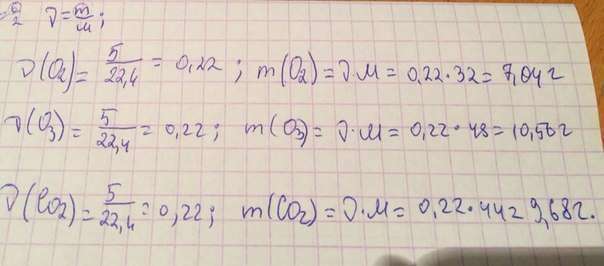 ν = m/M;
ν(O₂) = 5/22,4 = 0,22; m(O₂) = ν·M = 0,22·32 = 7,04г
ν(O₃) = 5/22,4 = 0,22; m(O₃) = ν·M = 0,22·48 = 10,56г
ν(CO₂) = 5/22,4 = 0,22; m(CO₂) = ν·M = 0,22·44 = 9,68г.